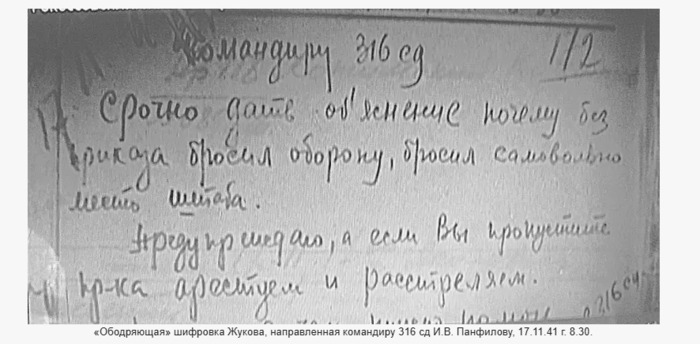 Командиру 316 сд 1/2
Срочно дайте об'яснение почему без
приказа бросил оборону, бросил самовольно
место штаба.
Предупреждаю, а если Вы пропустите
пр-ка арестуем и расстреляем.
316 сд
«Ободряющая» шифровка Жукова, направленная командиру 316 сд И.В. Панфилову, 17.11.41 г. 8.30.